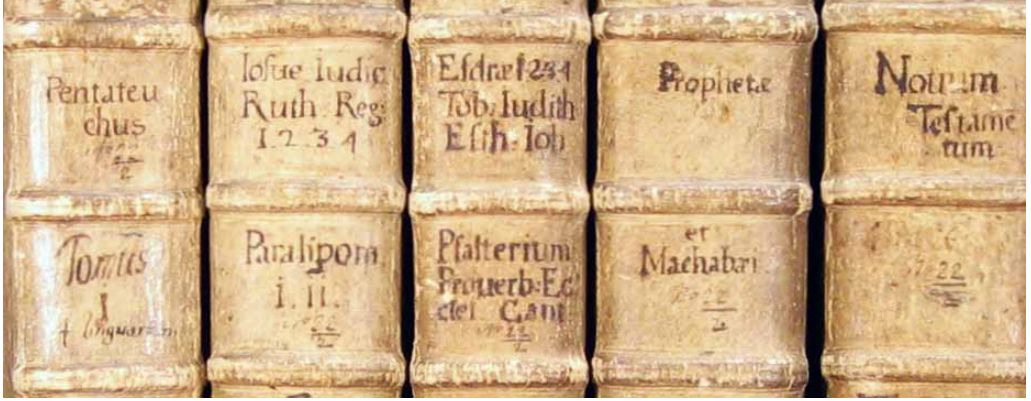 Pentateu
chus
22
2
Tomus
I
4 linguarum
Iosue Iudic
Ruth Reg:
1.2.3 4
Paralipom
I. II.
22
2
Esdræ 1234
Tob: Iudith
Esth: Iob
Psalterium
Prouerb: Ec
clei Cant
22
2
Prophetæ
et
Machabæi
22
2
Nouum
Testame
tum
22